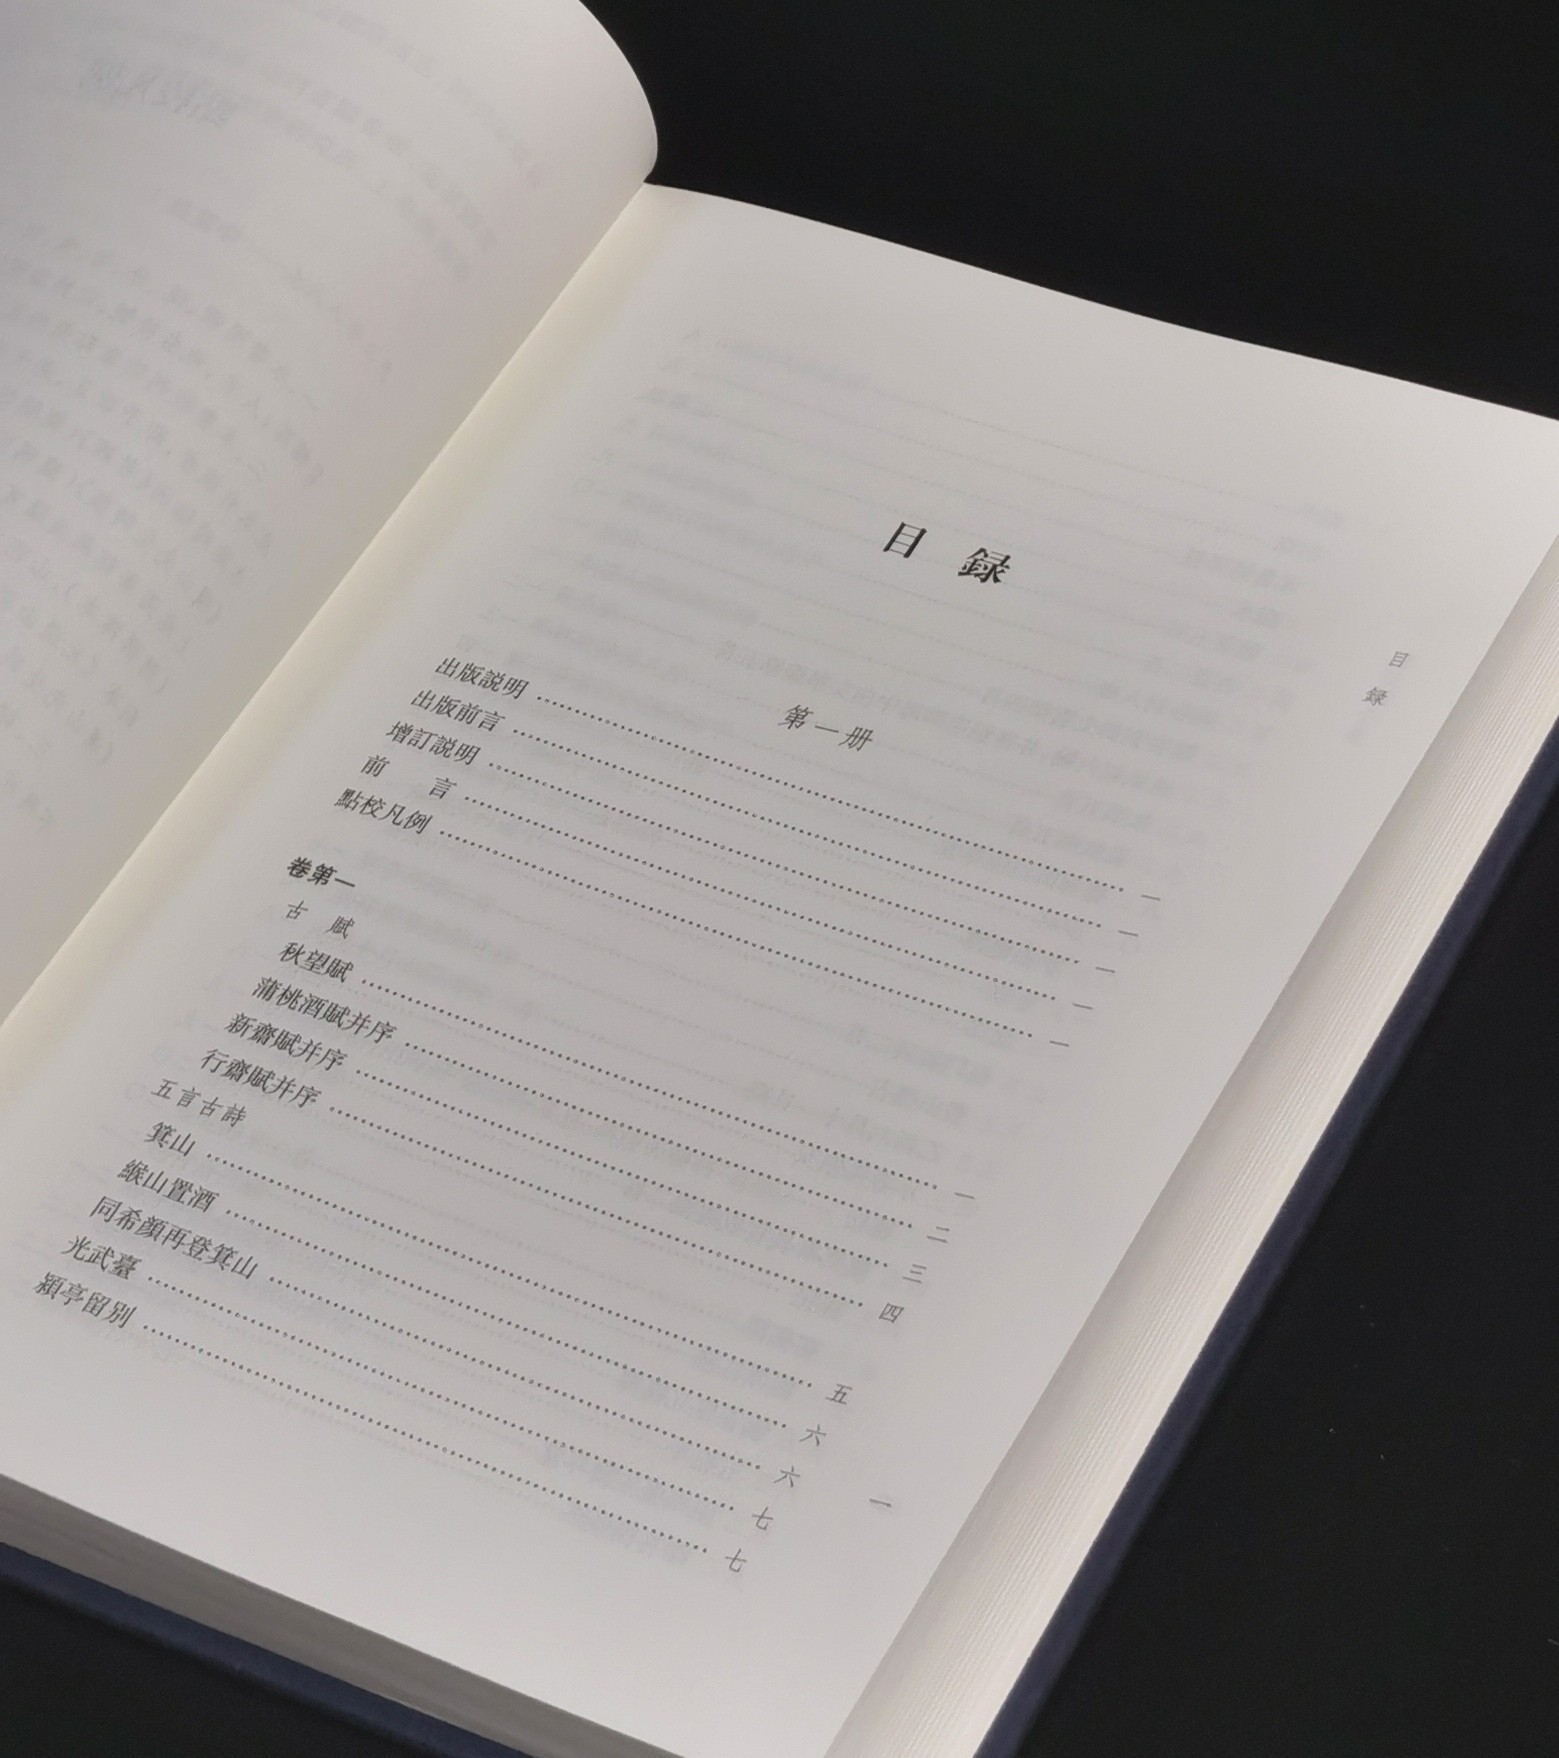 目 録
第一册
出版説明 …… 一
出版前言 …… 一
增訂説明 …… 一
前 言 …… 一
點校凡例 …… 一
卷第一
古 賦
秋望賦 …… 一
蒲桃酒賦并序 …… 二
新齋賦并序 …… 三
行齋賦并序 …… 四
五言古詩
箕山 …… 五
緱山置酒 …… 六
同希顔再登箕山 …… 六
光武臺 …… 七
潁亭留別 …… 七
目 録
一